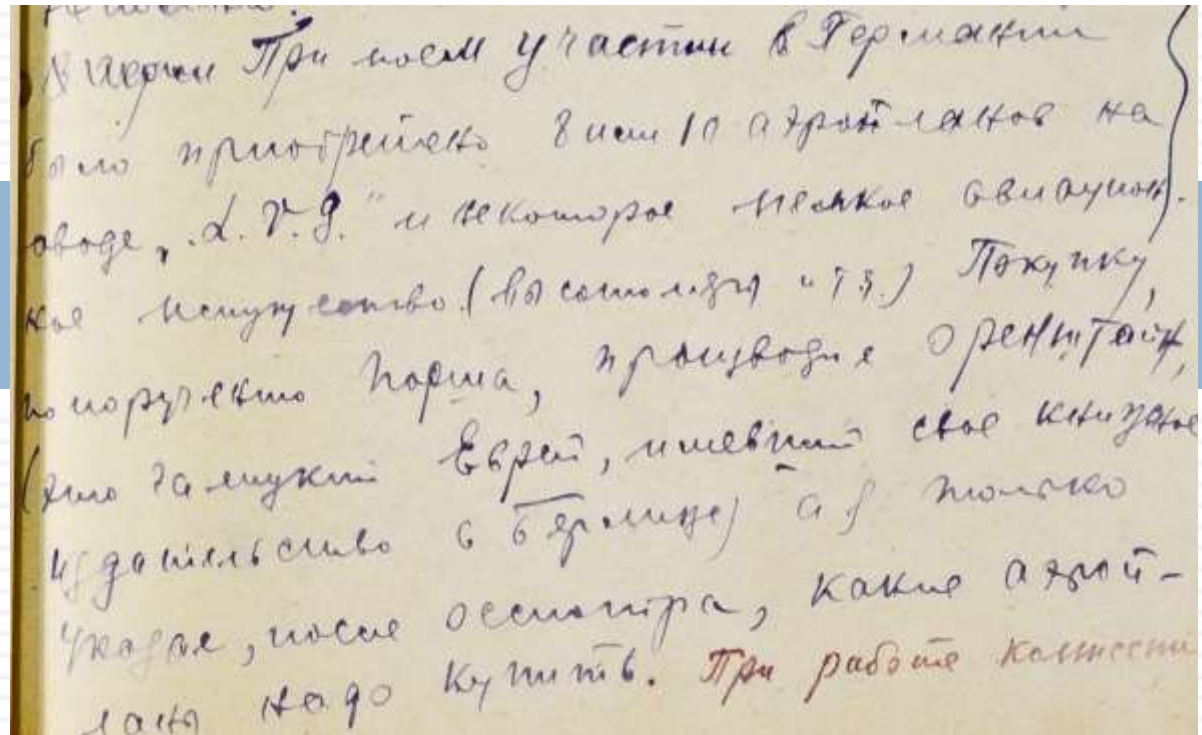 При моем участии в Германии
было приобретено 8 или 10 аэропланов на
заводе „L.V.G." и некоторое мелкое авиацион-
ное имущество (высотомеры и т.д.) Покупку,
по поручению Порта, производил Оренштайн,
(это галицкий Еврей, имевший свое книжное
издательство в Берлине) а я только
указал, после оссмотра, какие аэроп-
ланы надо купить. При работе комиссии